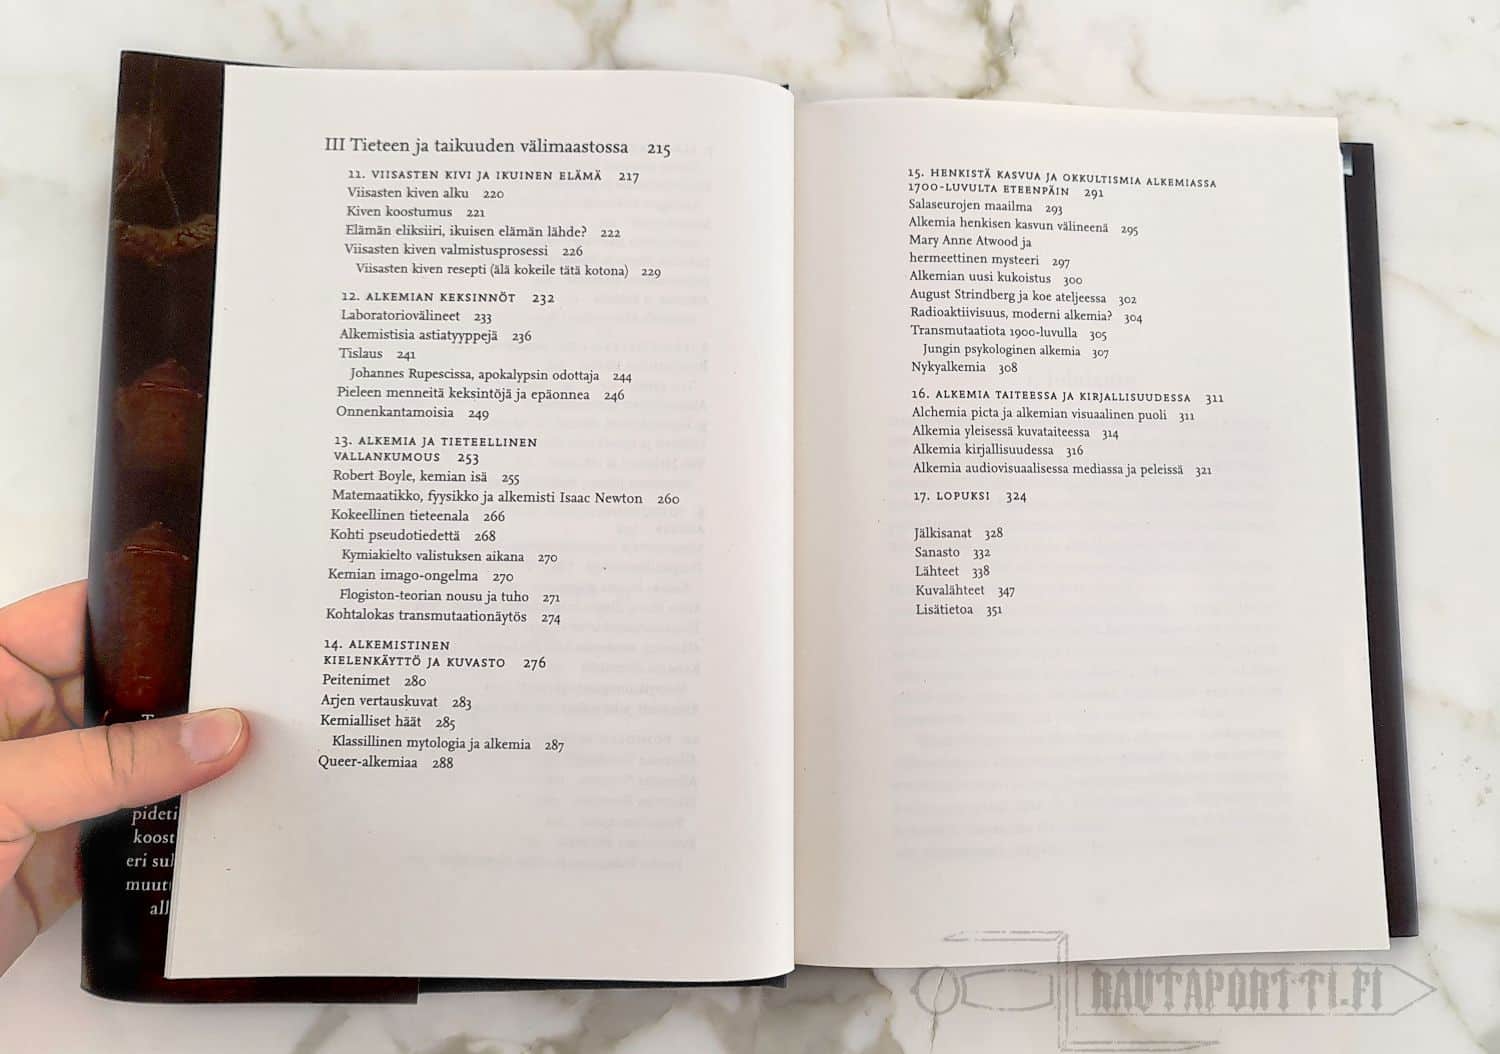 III Tieteen ja taikuuden välimaastossa 215
11. VIISASTEN KIVI JA IKUINEN ELÄMÄ 217
Viisasten kiven alku 220
Kiven koostumus 221
Elämän eliksiiri, ikuisen elämän lähde? 222
Viisasten kiven valmistusprosessi 226
Viisasten kiven resepti (älä kokeile tätä kotona) 229
12. ALKEMIAN KEKSINNÖT 232
Laboratoriovälineet 233
Alkemistisia astiatyyppejä 236
Tislaus 241
Johannes Rupescissa, apokalypsin odottaja 244
Pieleen menneitä keksintöjä ja epäonnea 246
Onnenkantamoisia 249
13. ALKEMIA JA TIETEELLINEN
VALLANKUMOUS 253
Robert Boyle, kemian isä 255
Matemaatikko, fyysikko ja alkemisti Isaac Newton 260
Kokeellinen tieteenala 266
Kohti pseudotiedettä 268
Kymiakielto valistuksen aikana 270
Kemian imago-ongelma 270
Flogiston-teorian nousu ja tuho 271
Kohtalokas transmutaationäytös 274
14. ALKEMISTINEN
KIELENKÄYTTÖ JA KUVASTO 276
Peitenimet 280
Arjen vertauskuvat 283
Kemialliset häät 285
Klassillinen mytologia ja alkemia 287
Queer-alkemiaa 288
pideti
koost
eri sul
muut
all
15. HENKISTÄ KASVUA JA OKKULTISMIA ALKEMIASSA
1700-LUVULTA ETEENPÄIN 291
Salaseurojen maailma 293
Alkemia henkisen kasvun välineenä 295
Mary Anne Atwood ja
hermeettinen mysteeri 297
Alkemian uusi kukoistus 300
August Strindberg ja koe ateljeessa 302
Radioaktiivisuus, moderni alkemia? 304
Transmutaatiota 1900-luvulla 305
Jungin psykologinen alkemia 307
Nykyalkemia 308
16. ALKEMIA TAITEESSA JA KIRJALLISUUDESSA 311
Alchemia picta ja alkemian visuaalinen puoli 311
Alkemia yleisessä kuvataiteessa 314
Alkemia kirjallisuudessa 316
Alkemia audiovisuaalisessa mediassa ja peleissä 321
17. LOPUKSI 324
Jälkisanat 328
Sanasto 332
Lähteet 338
Kuvalähteet 347
Lisätietoa 351
RAUTAPORTTI.FI